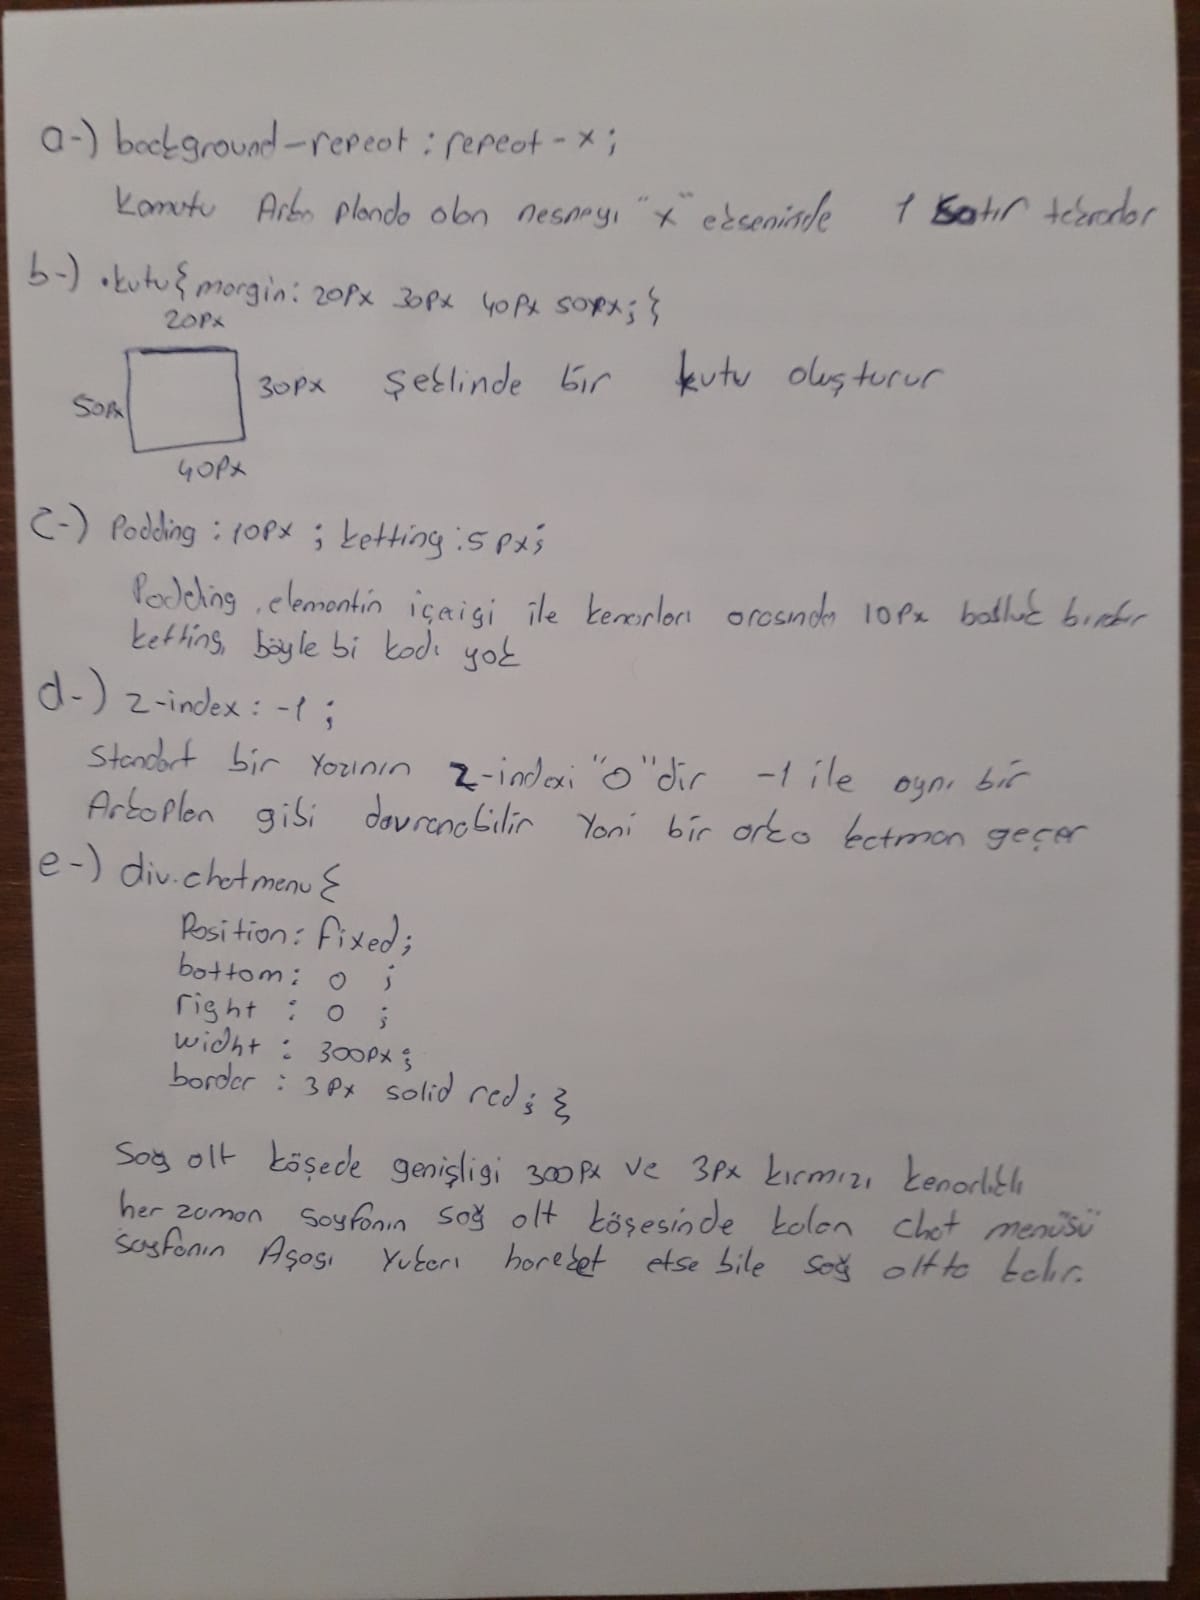 a-) background-repeat : repeat-x ;
Komutu Arka planda olan nesneyi "x" ekseninde 1 satır tekrarlar
b-) .kutu{ margin: 20px 30px 40px 50px; }
20px
50px
30px şeklinde bir kutu oluşturur
40px
c-) Padding : 10px ; ketting : 5 px ;
Padding, elementin içeriği ile kenarları arasında 10px boşluk bırakır
ketting, böyle bi kodı yok
d-) z-index : -1 ;
Standart bir yazının z-indexi "0"dır -1 ile aynı bir
Arkaplan gibi davranabilir Yani bir arka katman geçer
e-) div.chatmenu {
Position : fixed ;
bottom : 0 ;
right : 0 ;
widht : 300px ;
border : 3px solid red ; }
Sağ alt köşede genişligi 300px ve 3px kırmızı kenarlıklı
her zaman sayfanın sağ alt köşesinde kalan chat menüsü
sayfanın Aşagı Yukarı hareket etse bile sağ altta kalır.